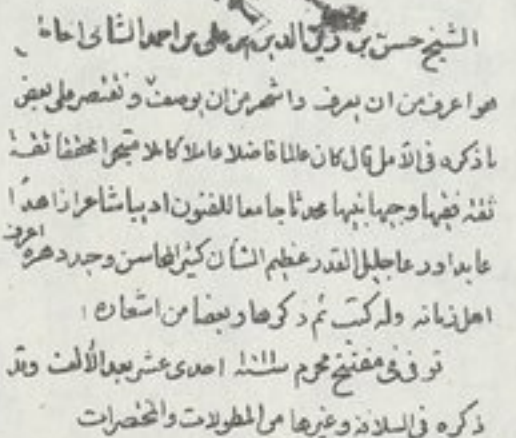 الشيخ حسن بن زين الدين بن على بن احمد الشامى احاه
هو اعرف من ان يعرف واشهر من ان يوصف ونقتصر على بعض
ما ذكره فى الامل قال كان عالما فاضلا عاملا كاملا متبحرا محققا ثقة
ثقة فقيها وجيها نبيها محدثا جامعا للفنون اديبا شاعرا زاهدا
عابدا ورعا جليل القدر عظيم الشأن كثير المحاسن وحيد دهره اعرف
اهل زمانه وله كتب ثم ذكرها وبعضا من اشعاره
توفى فى مفتتح محرم سنة احدى عشر بعد الألف وقد
ذكره فى السلافة وغيرها من المطولات والمختصرات